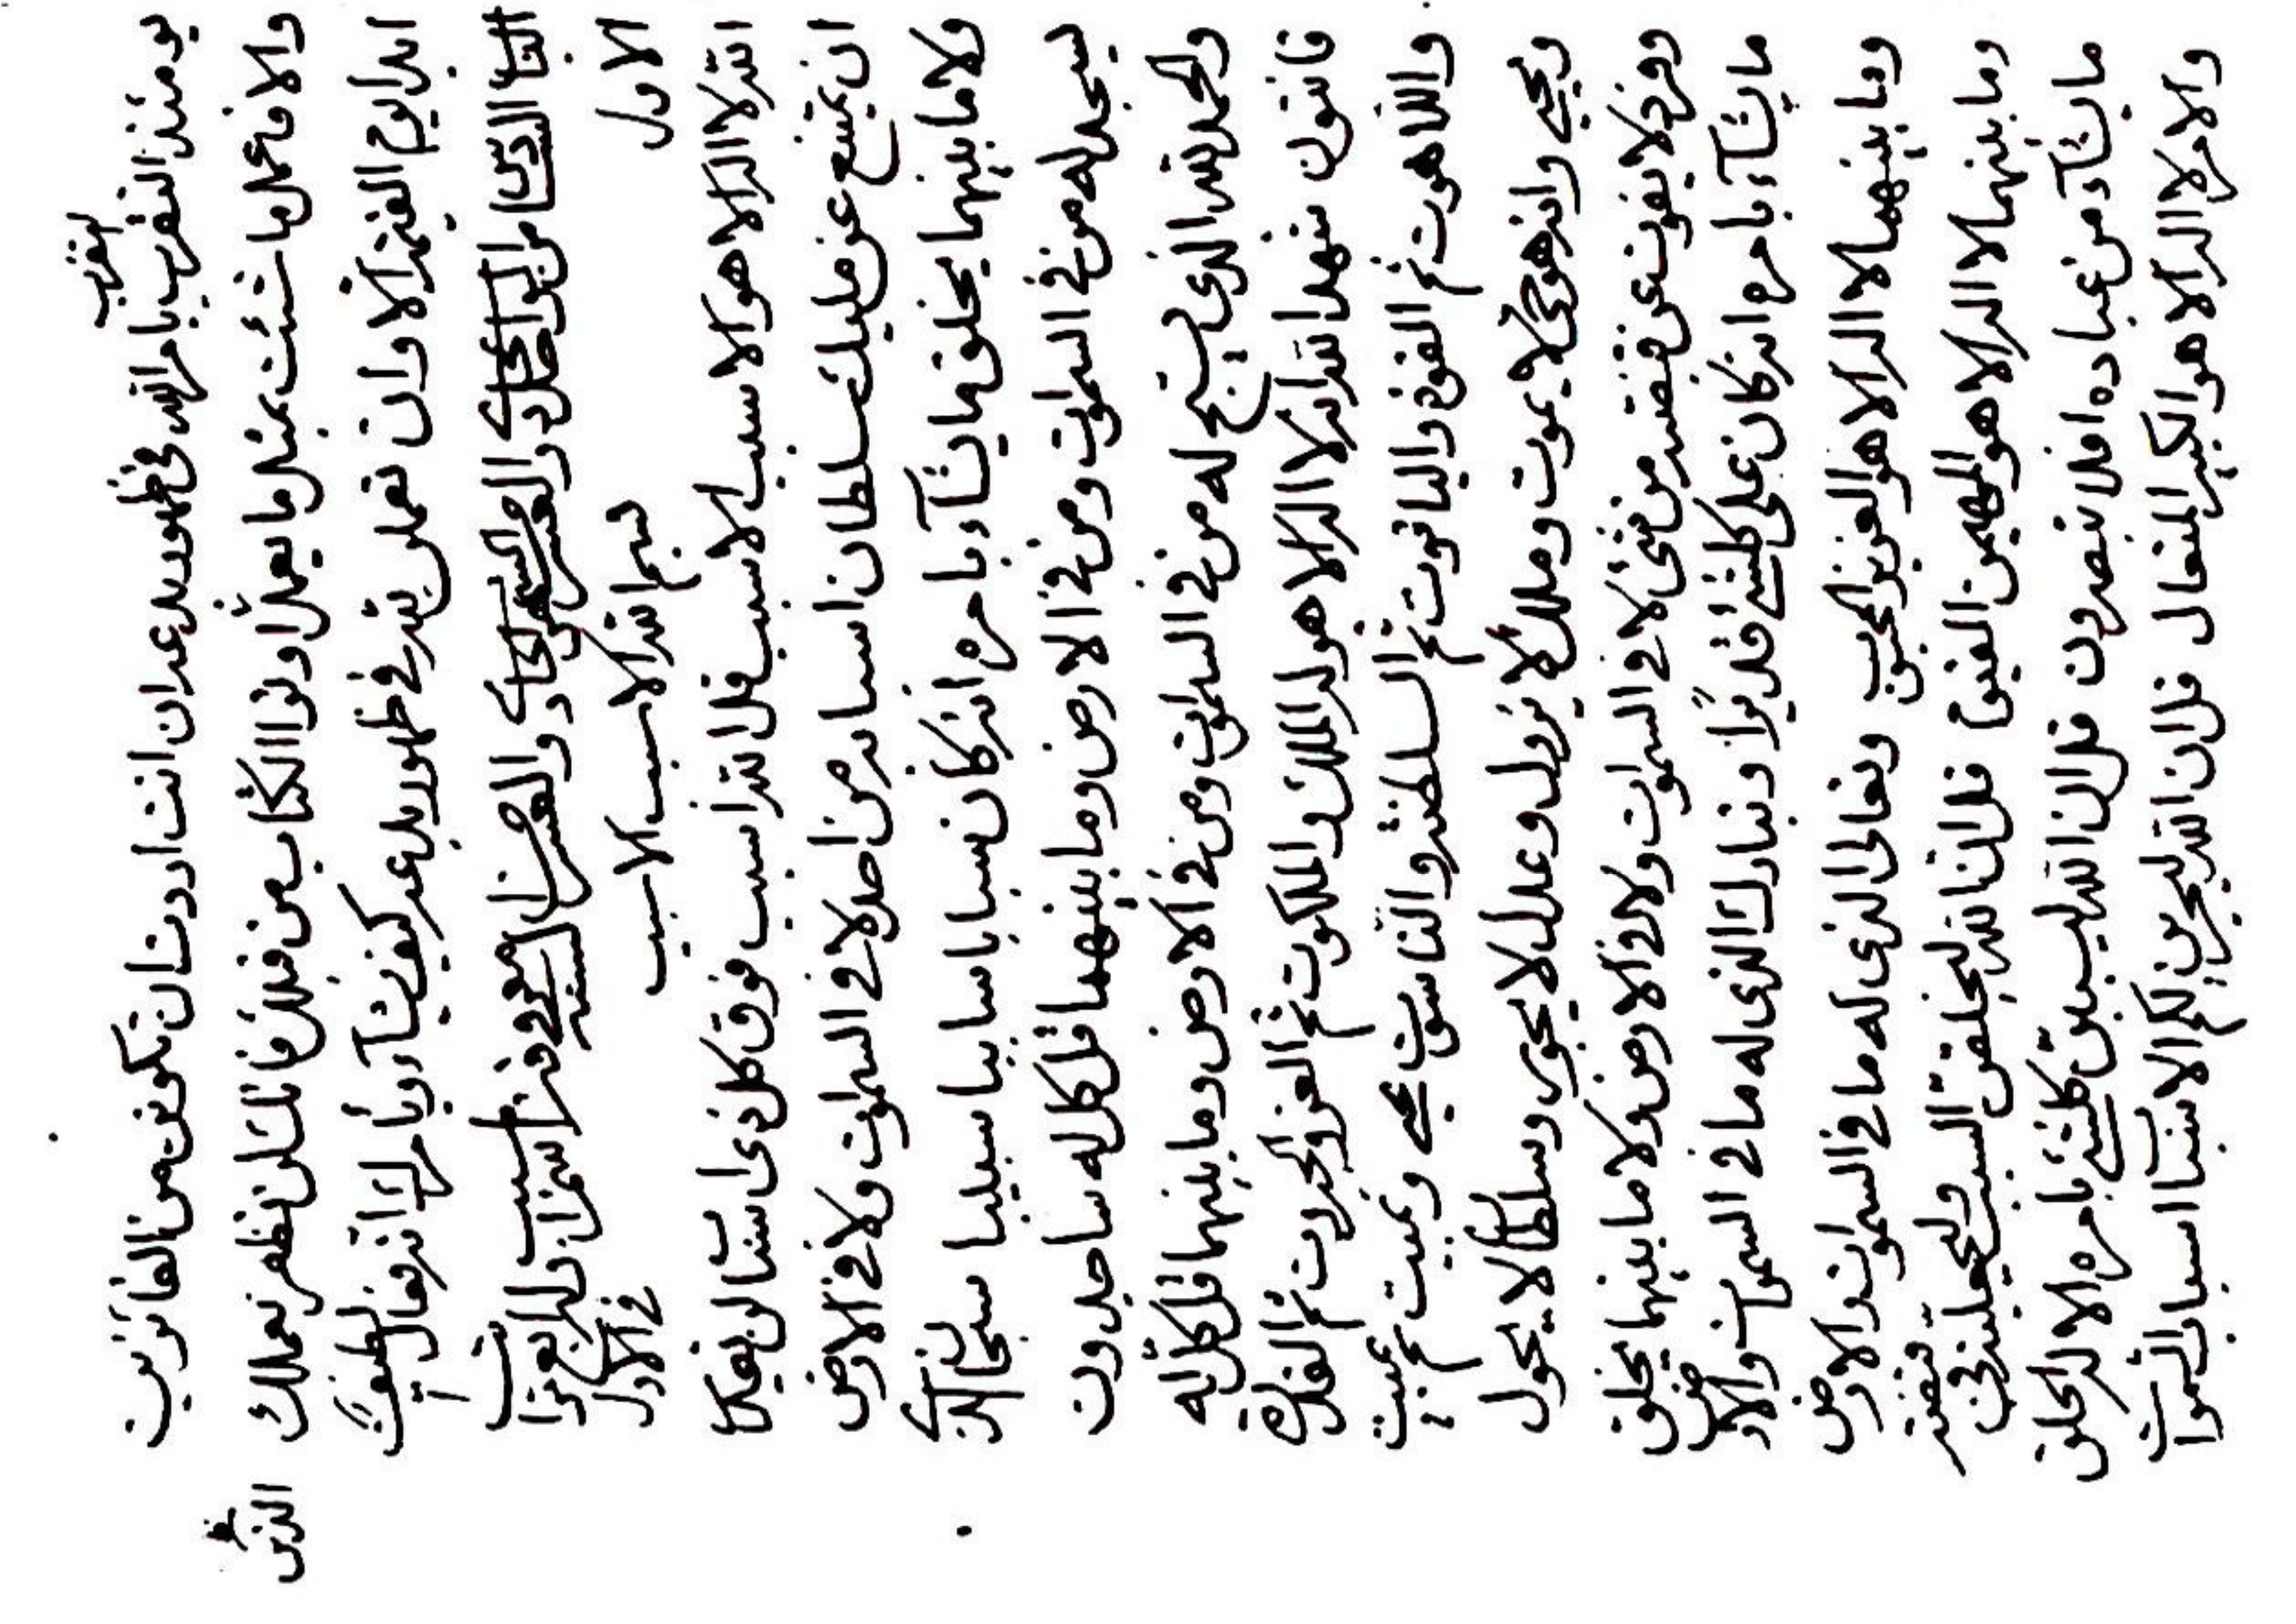 يومئذ التقرب بامر الله في ظهور بدء عدان انت اردت ان تكونن من الفائزين
والا فاعمل ما شئت بمثل ما يعمل اولوا الكتاب من قبلك فانك لن تظهر بعملك
ابدا يوم القيمة الا وان تعمل لله في ظهور بدء عد كيف يشآء بامرك انه تعال لطيف
الباب
الاول بسم الله الاسبب الاسبب في الاول
الله لا اله الا هو الاسبب الاسبب قل الله اسبب فوق كل ذي اسباب لن يقدر
ان يمتنع عن مليك سلطان اسبابه من احد لا في السموات ولا في الارض
ولا ما بينهما يخلق ما يشآء بامره انه كان سبابا سابيا سبيبا سبحان الذي
يسجد له من في السموات ومن في الارض وما بينهما قل كل له ساجدون
والحمد لله الذي يسبح له من في السموات ومن في الارض وما بينهما قل كل له
قانتون شهد الله انه لا اله الا هو له الملك والملكوت ثم العز والجبروت ثم القدرة
واللاهوت ثم القوة والياقوت ثم السلطنة والناسوت يحيي ويميت ثم يميت
ويحيي وانه هو حي لا يموت وملك لا يزول وعدل لا يجور وسلطان لا يحول
وفرد لا يفوت عن قبضته من شئ لا في السموات ولا في الارض ولا ما بينهما يخلق
ما يشآء بامره انه كان على كلشئ قديرا وتبارك الذي له ما في السموات والارض
وما بينهما لا اله الا هو العزيز المحبوب وتعالى الذي له ما في السموات والارض
وما بينهما لا اله الا هو المهيمن القيوم قل ان الله ليخلقن السبب وليجعلنه في قبضته
ما يشآء من عباده افلا تبصرون قل ان الله ليسببن كلشئ بامره الا له الخلق
والامر لا اله الا هو الكبير المتعال قل ان الله ليجرين لكم الاسباب اسباب السموات